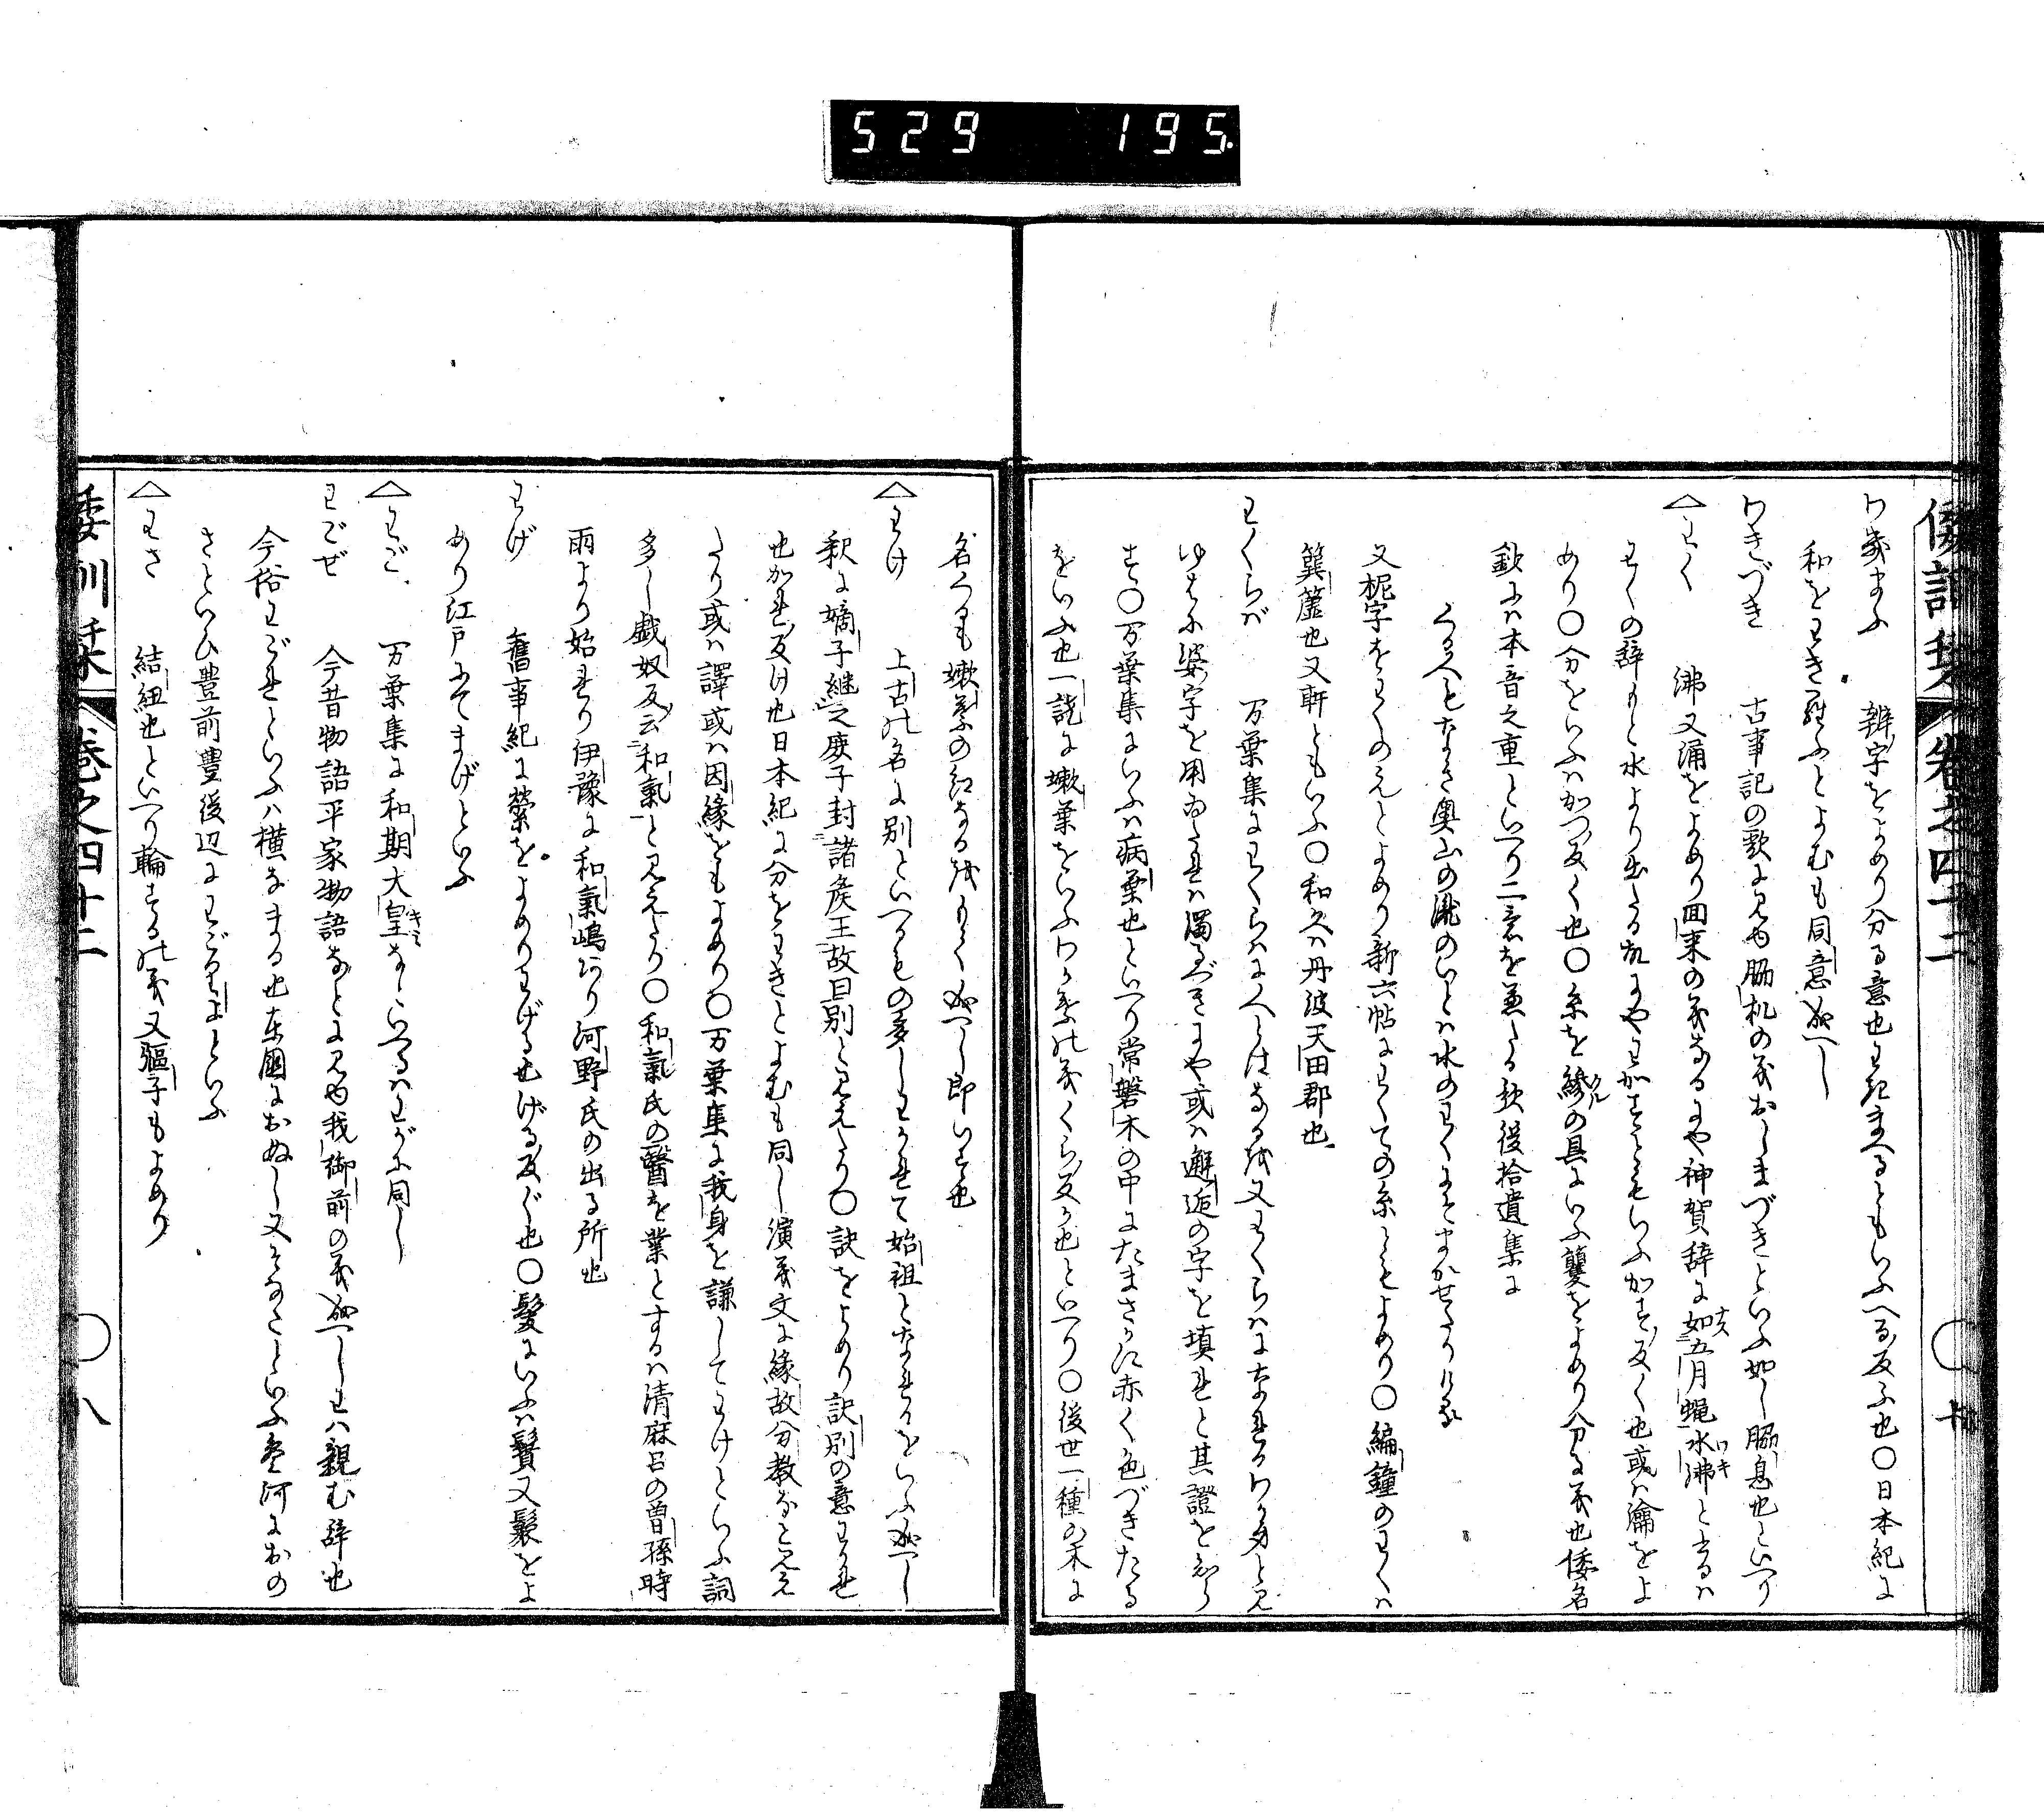 529 195
倭訓栞 巻之四十二
わきまふ 辨字をよめり分る意也わきまへるともいふへる反ふ也〇日本紀に
和をわき踵ふとよむも同意成へし
わきづき 古事記の歌に見ゆ脇机の義おしまづきといふ如し脇息也といへり
△わく 沸又涌をよめり回来の義なるにや神賀辞に如五月蝿水沸とあるハ
わくの辞もと水より出たる成にやわかすともいふかす反く也或ハ瀹をよ
めり〇分をいふハかつ反く也〇糸を縿の具にいふ籰をよめり分る義也倭名
鈔にハ本音之重といへり二意を兼たる歟後拾遺集に
くる人もなき奥山の瀧のいとハ水のわくにそまかせたりける
又柅字をわくのえとよめり新六帖にわくての糸ともよめり〇編鐘のわくハ
簨簴也又軒ともいふ〇和久ハ丹波天田郡也
わくらば 万葉集にわくらはに人とはなるを又わくらはになれるわか身と見
ゆるに婆字を用ゐたれハ濁るべきにや或ハ邂逅の字を填れと其證をしら
す〇万葉集にいふハ病葉也といへり常磐木の中にたまさかに赤く色づきたる
をいふ也一説に嫩葉をいふわか葉の義くら反か也といへり〇後世一種の木に
名くるも嫩葉の紅なるをもて成へし即いす也
△わけ 上古の名に別といへるもの多しわかれて始祖となれるをいふ成へし
釈に嫡子継之庶子封諸侯王故曰別と見えたり〇訣をよめり訣別の意わかれ
也かれ反け也日本紀に分をわきとよむも同し演義文に縁故分教なと見え
たり或ハ譯或ハ因縁をもよめり〇万葉集に我身を謙してわけといふ詞
多し戯奴反云和氣と見えたり〇和氣氏の醫を業とするハ清麻呂の曽孫時
雨より始れり伊豫に和氣嶋あり河野氏の出る所也
わげ 舊事紀に縈をよめりわげる也げる反ぐ也〇髪にいふハ鬟又鬏をよ
めり江戸にてまげといふ
△わご 万葉集に和期大皇なといへるハわがに同し
わごぜ 今昔物語平家物語なとに見ゆ我御前の義成へしわハ親む辞也
今俗わごれといふハ横なまる也東國におぬし又そなたといふ参河におの
さといひ豊前豊後辺にわごりよといふ
△わさ 結紐也といへり輪するの義又彄子もよめり
倭訓栞 巻之四十二 〇八